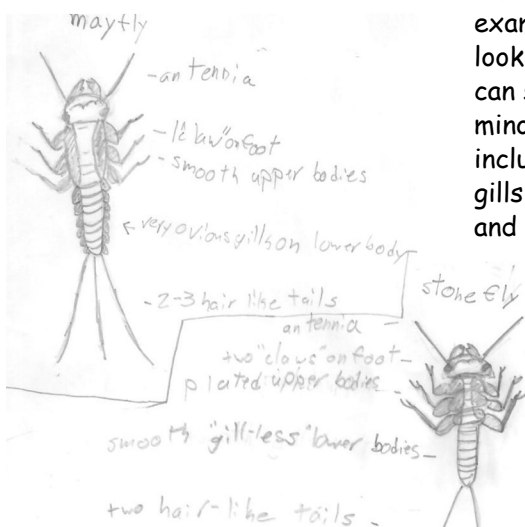 mayfly
antennia
1 "claw" on foot
smooth upper bodies
very ovious gills on lower body
2-3 hair like tails
stonefly
antennia
two "claws" on foot
plated upper bodies
smooth "gill-less" lower bodies
two hair-like tails
look
can
inclu
gills
and